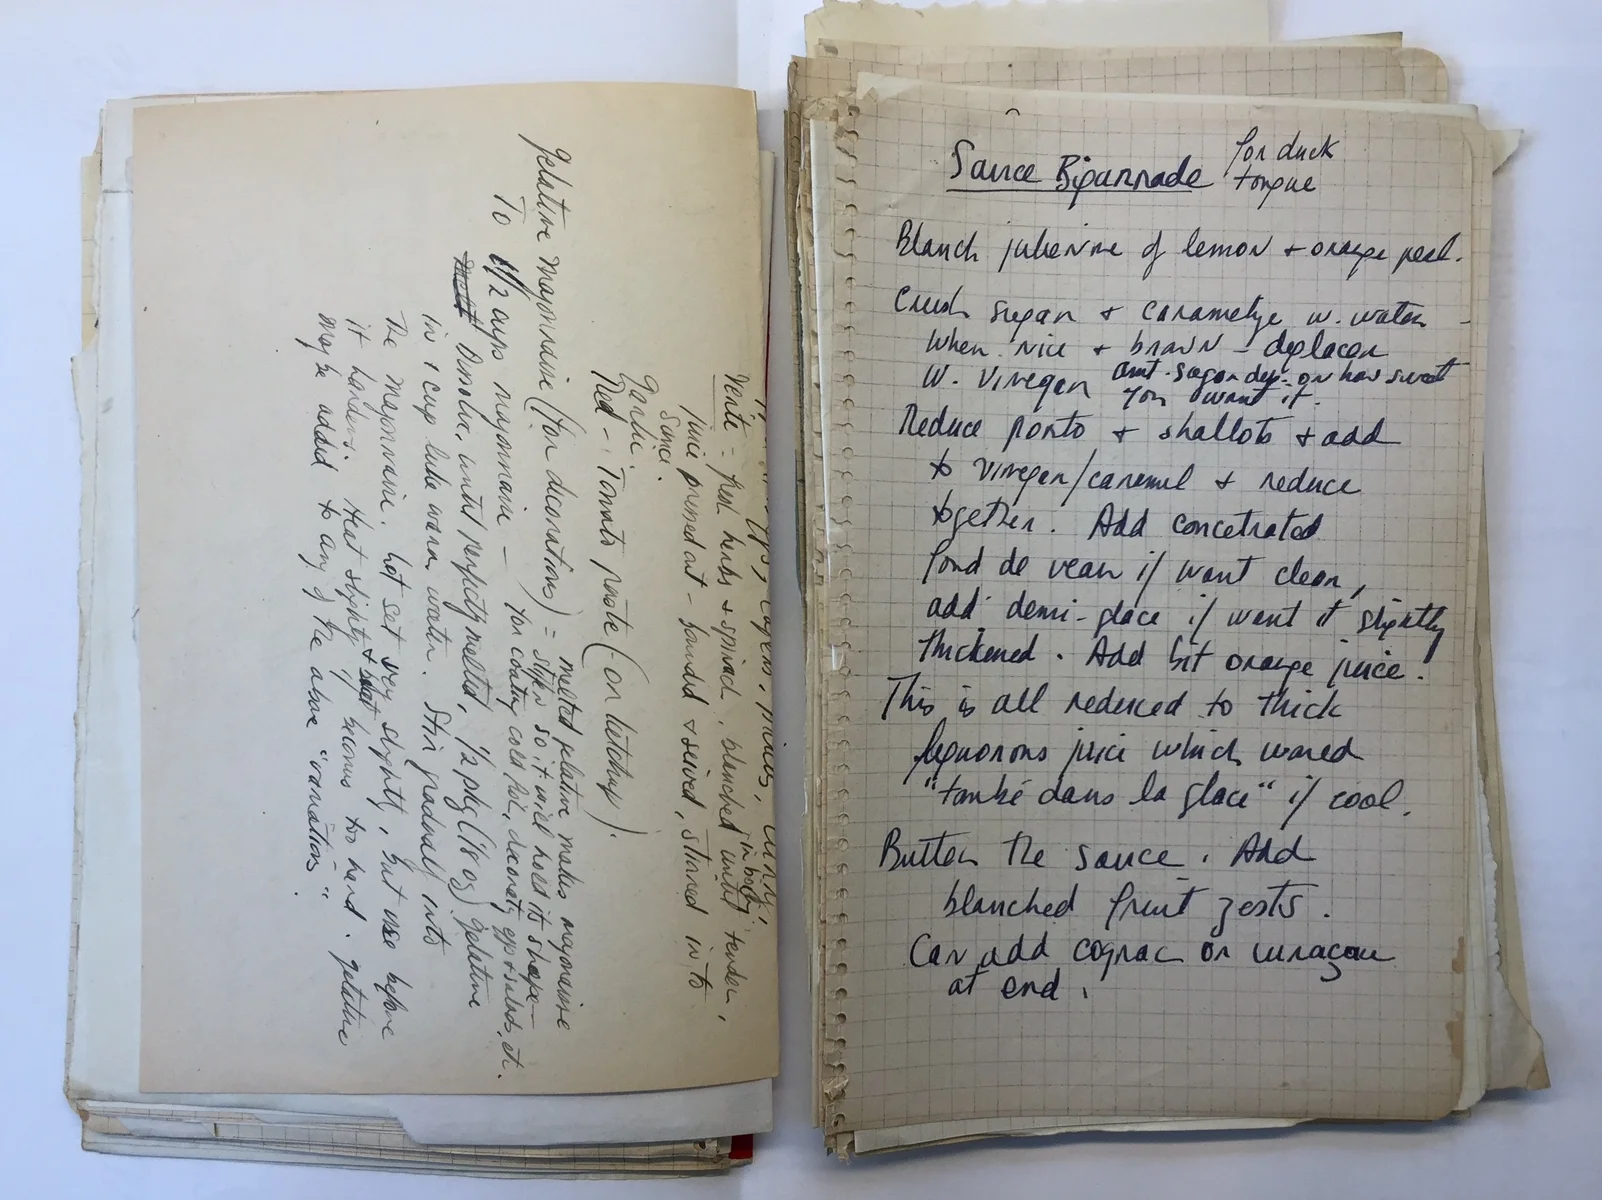 capers, pickles, curry!
Verte - fresh herbs & spinach, blanched until tender,
in body
juice pressed out - pounded & seived, stirred into
Sauce.
Garlic.
Red - Tomato paste (or ketchup).
Gelatine Mayonnaise (for decorations) = melted gelatine makes mayonnaise
stiffer so it will hold its shape -
for coating cold fish, decorating eggs & salads, etc.
To 1 1/2 cups mayonnaise -
Dissolve, until perfectly melted, 1/2 pkg (1/8 oz) gelatine
in 1/4 cup luke warm water. Stir gradually into
the mayonnaise. Let set very slightly, but use before
it hardens. Heat slightly & beat if becomes too hard. gelatine
may be added to any of the above "variations".
Sauce Bigarrade for duck
tongue
Blanch julienne of lemon + orange peel.
Crush sugar + caramelize w. water -
When nice + brown - deglacer
w. vinegar amt. sugar dep. on how sweet
you want it.
Reduce porto + shallots + add
to vinegar/caramel + reduce
together. Add concetrated
fond de veau if want clear,
add demi-glace if want it slightly
thickened. Add bit orange juice.
This is all reduced to thick
liquorous juice which wared
"tombé dans la glace" if cool.
Butter the sauce. Add
blanched fruit zests.
Can add cognac or curaçau
at end.